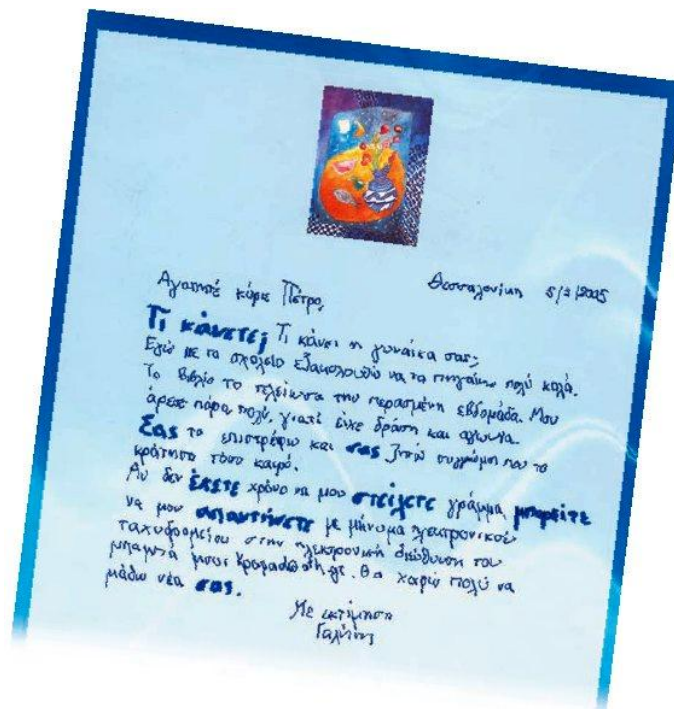 Θεσσαλονίκη 5/2/2005
Αγαπητέ κύριε Πέτρο,
Τι κάνετε; Τι κάνει η γυναίκα σας;
Εγώ με το σχολείο εξακολουθώ να τα πηγαίνω πολύ καλά.
Το βιβλίο το τελείωσα την περασμένη εβδομάδα. Μου
άρεσε πάρα πολύ, γιατί είχε δράση και αγωνία.
Σας το επιστρέφω και σας ζητώ συγγνώμη που το
κράτησα τόσο καιρό.
Αν δεν έχετε χρόνο να μου στείλετε γράμμα, μπορείτε
να μου απαντήσετε με μήνυμα ηλεκτρονικού
ταχυδρομείου στην ηλεκτρονική διεύθυνση του
μπαμπά μου: Θα χαρώ πολύ να
μάθω νέα σας.
Με εκτίμηση